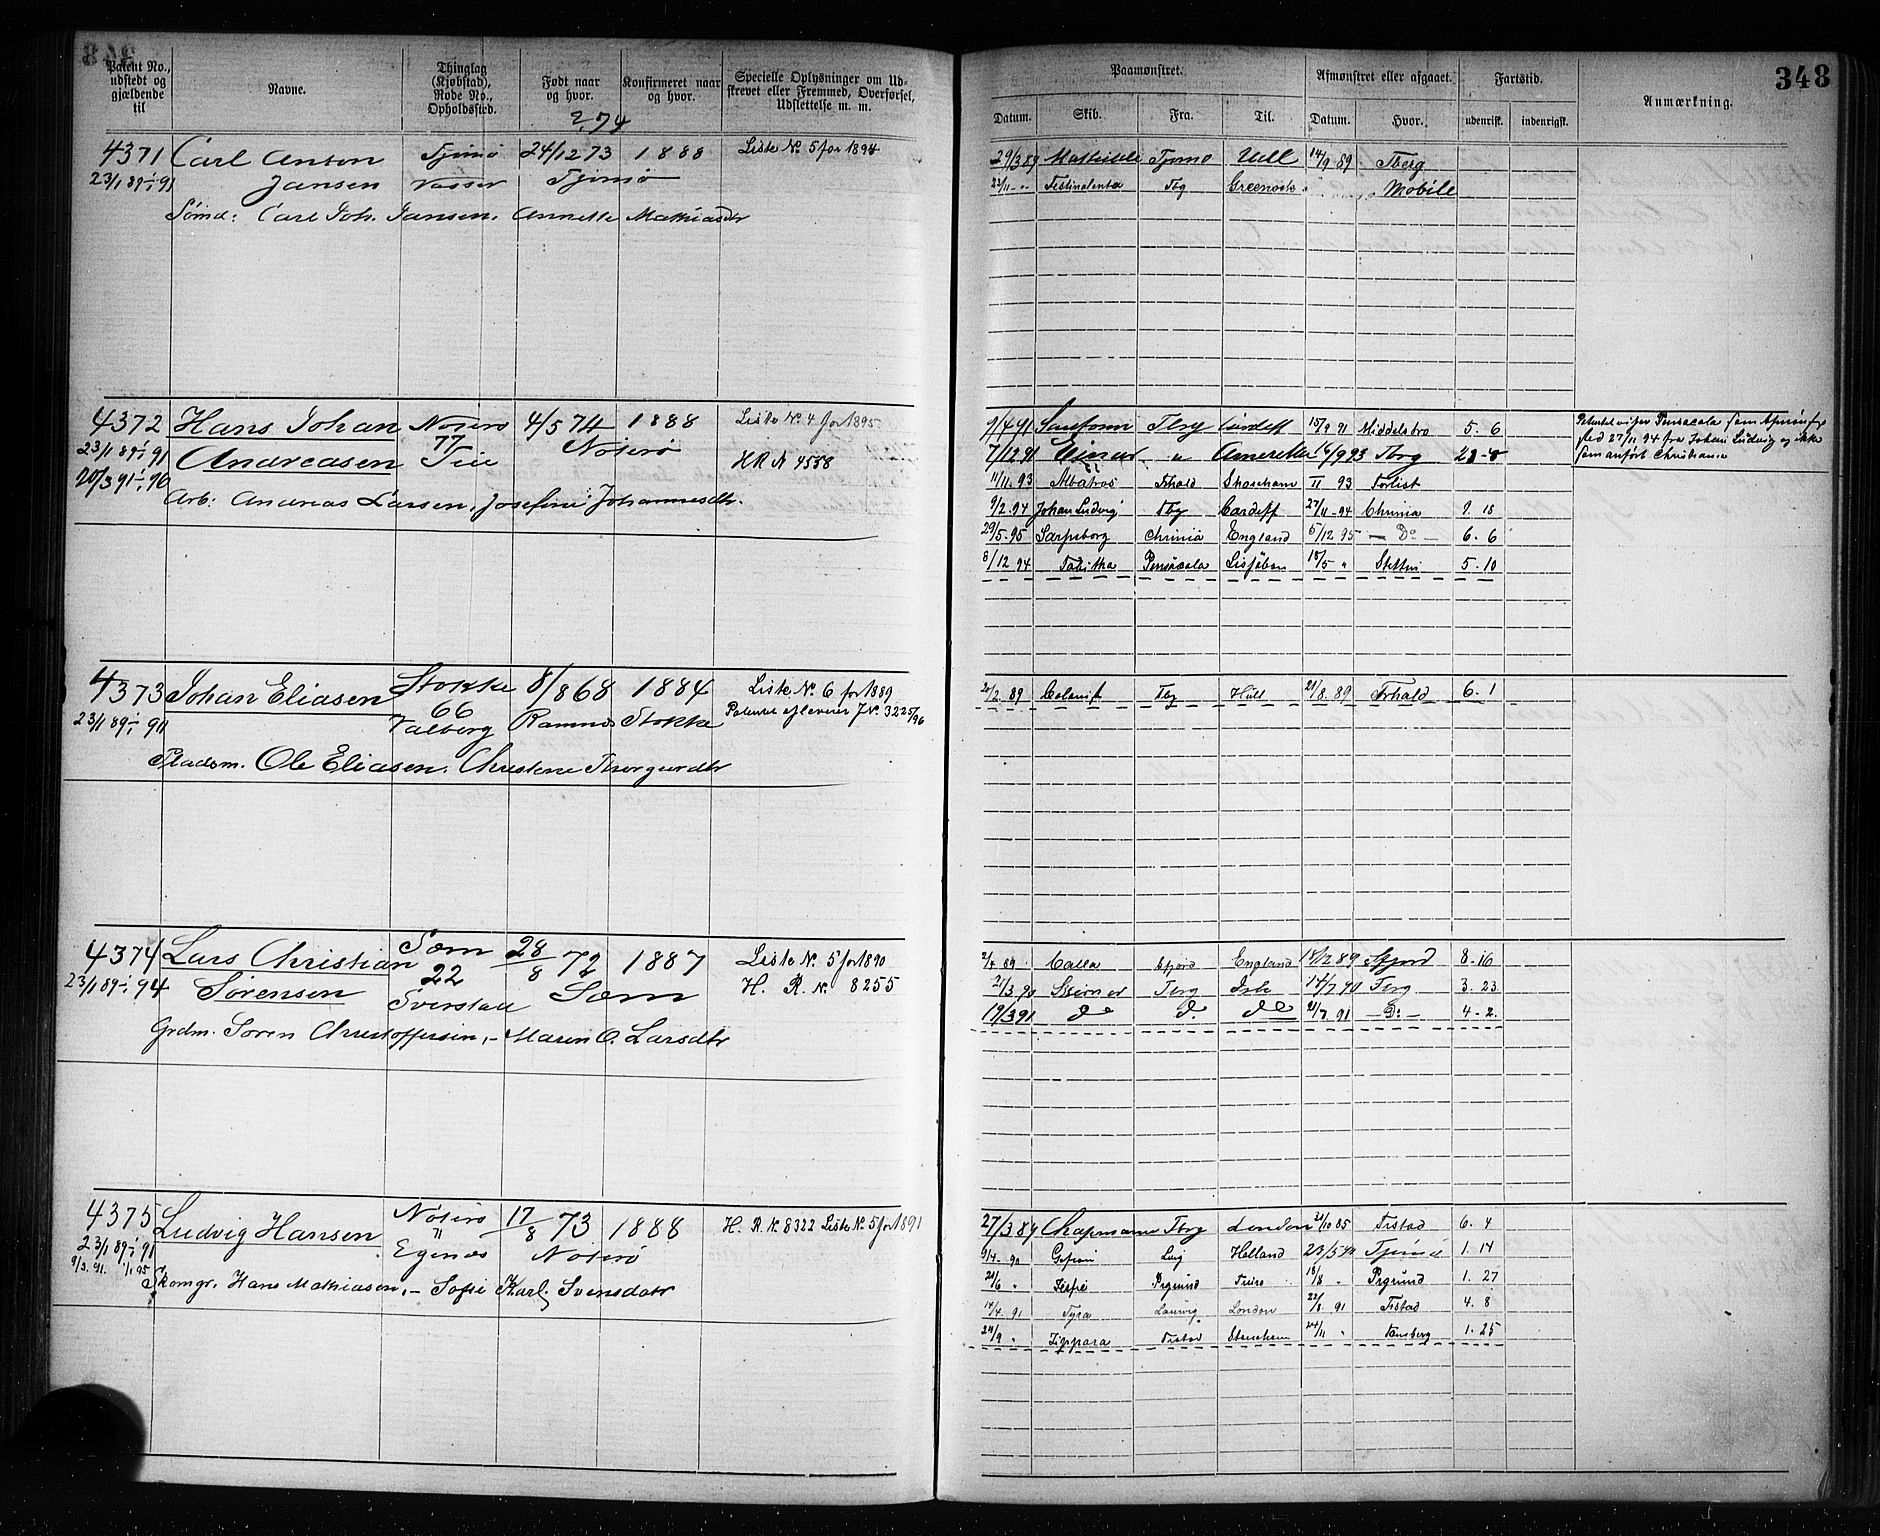 348
Patent No., udstedt og gjældende til
Navne.
Thinglag (Kjøbstad), Rode No., Opholdssted.
Født naar og hvor.
Konfirmeret naar og hvor.
Specielle Oplysninger om Udskrevet eller Fremmed, Overførsel, Udslettelse m. m.
4371 Carl Anton Tjømø 24/12 73 1888 Liste No. 5 for 1894
23/1 89-1/1 91 Jansen Vasser Tjømø
Sømd: Carl Joh. Jansen. Annette Mathiasdtr
4372 Hans Johan Nøterø 4/5 74 1888 Liste No. 4 for 1895
23/1 89-1/1 91 Andreasen 77 Tie Nøterø H R No 4558
20/3 91-1/1 96
Arb: Andreas Larsen, Josefine Johannesdtr.
4373 Johan Eliasen Stokke 8/8 68 1884 Liste No. 6 for 1889
66
23/1 89-1/1 90 Valberg Ramnes Stokke Patentet afleveret J No. 3225/96
Pladsm. Ole Eliasen. Christene Thorgersdtr
4374 Lars Christian Sæm 28/8 72 1887 Liste No. 5 for 1890
23/1 89-1/1 94 Sørensen 22 Sæm H. R. No. 8255
Grdm. Søren Christoffersen, - Maren O. Larsdtr
4375 Ludvig Hansen Nøterø 17/8 73 1888 H. R. No. 8322 Liste No. 5 for 1891
11
23/1 89-1/1 91 Egenes Nøterø
9/3 91. 1/1 95
Skomgr. Hans Mathiasen, - Sofie Karl. Svensdatr
348
Paamønstret.
Afmønstret eller afgaaet.
Fartstid.
Anmærkning.
Datum. Skib. Fra. Til. Datum. Hvor. udenrigsk. indenrigsk.
29/3 89 Mathilde Tjømø Hull 14/9 89 Tberg
Tbg Greenock Mobile
9/4 91 Tbrg Cardiff 15/9 91 Middelsbro 5. 6
7/12 91 Einar " Amerika 16/9 93 Tbrg 21-8
11/11. 93 Albatros Frhald Shoreham II 93 Forlist
9/2. 94 Johan Ludvig Tbg Cardiff 27/11-94 Chrnia 9. 18
29/5. 95 Sarpsborg Chrnia England 5/12 95 - Do - 6. 6
8/12 94 Tabitha Pensacola 18/5 " Stettin 5. 10
Patentet viser Pensacola som
sted 27/11 94 fra Johan Ludvig og ikke
som anført Christiania
2/2. 89 Colonist Tbg Hull 21/8. 89 Frhald 6. 1
2/4 89 Calla Sfjord England 18/12 89 Sfjord 8. 16
21/3 90 Skirner Tbrg 14/7 90 Tbrg 3. 23
19/3 91 do do do 21/7 91 - Do - 4. 2
27/3 89 Chapmann Tbrg London 31/10 85 Frstad 6. 4
9/4. 90 Gefion Lvig Holland 23/5 90 Tjømø 1. 14
21/6 " Prgrund 18/8 " Prgrund 1. 27
14/4. 91 Tyra Laurvig London 22/8 91 Frstad 4. 8
24/9 " Zippora Frstad 24/11 " Tønsberg 1. 25